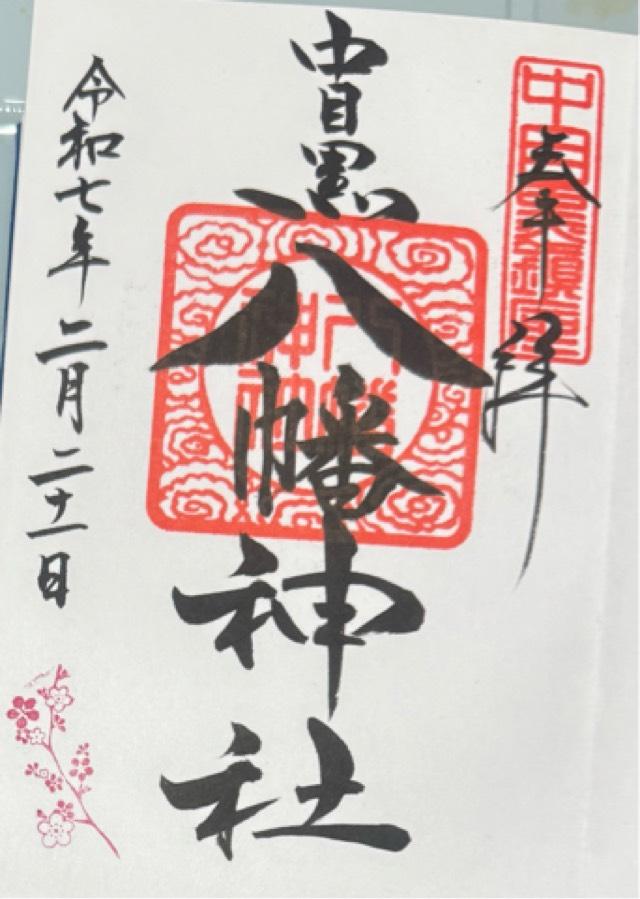 奉拝
中目黒鎮座
中目黒八幡神社
八幡
神社
令和七年二月二十一日